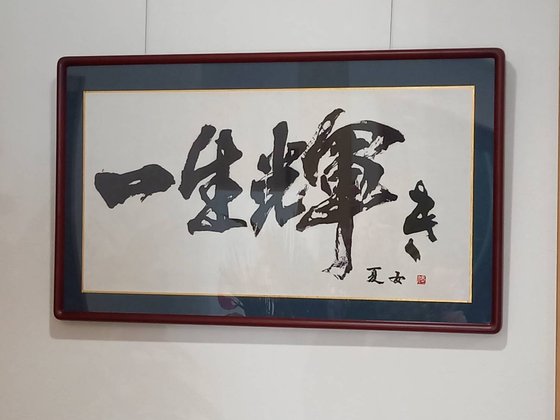 一生輝き
夏女